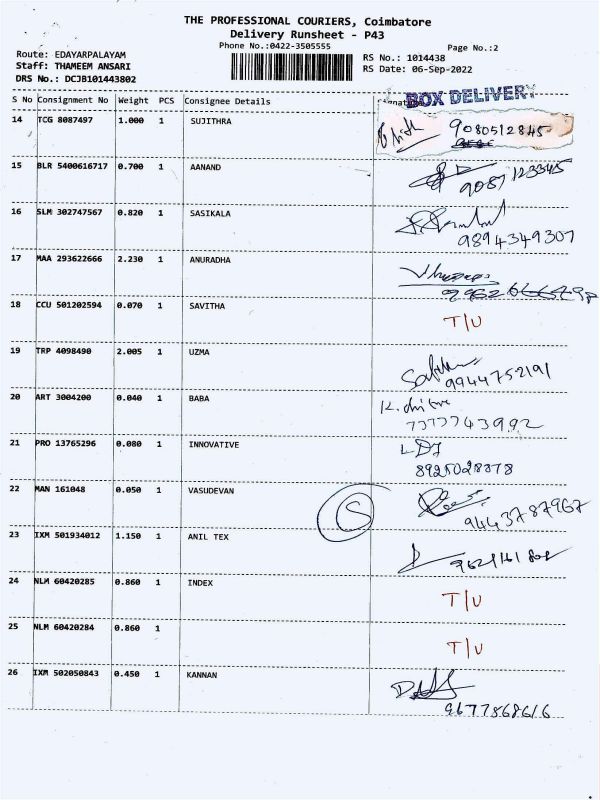 THE PROFESSIONAL COURIERS, Coimbatore
Delivery Runsheet - P43
Phone No.:0422-3505555
Page No.:2
Route: EDAYARPALAYAM
Staff: THAMEEM ANSARI
DRS No.: DCJB101443802
RS No.: 1014438
RS Date: 06-Sep-2022
S No Consignment No Weight PCS Consignee Details
BOX DELIVERY
14 TCG 8087497 1.000 1 SUJITHRA 9080512845
15 BLR 5400616717 0.700 1 AANAND
16 SLM 302747567 0.820 1 SASIKALA 9894349307
17 MAA 293622666 2.230 1 ANURADHA
18 CCU 501202594 0.070 1 SAVITHA T/U
19 TRP 4098490 2.005 1 UZMA 9944752191
20 ART 3004200 0.040 1 BABA 7373743992
21 PRO 13765296 0.080 1 INNOVATIVE 8925028378
22 MAN 161048 0.050 1 VASUDEVAN S 9443787967
23 IXM 501934012 1.150 1 ANIL TEX
24 NLM 60420285 0.860 1 INDEX T/U
25 NLM 60420284 0.860 1 T/U
26 IXM 502050843 0.450 1 KANNAN 9677868616